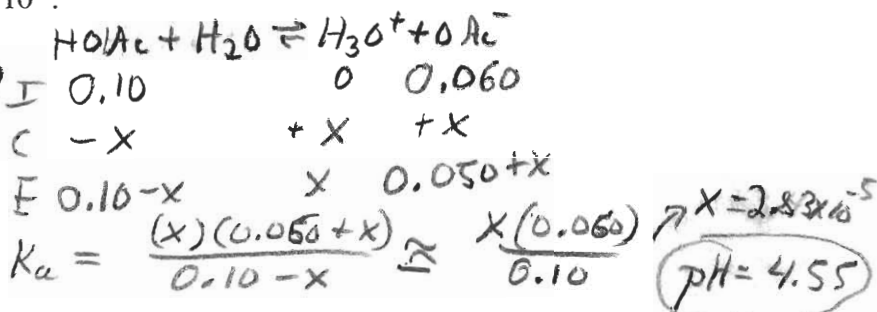 10 .
HOAc + H₂O ⇌ H₃O⁺ + OAc⁻
I 0.10 0 0.060
C -x +x +x
E 0.10-x x 0.050+x
Ka = (x)(0.060+x) / 0.10-x ≈ x(0.060) / 0.10 ↗ x = 2.83x10⁻⁵
pH = 4.55